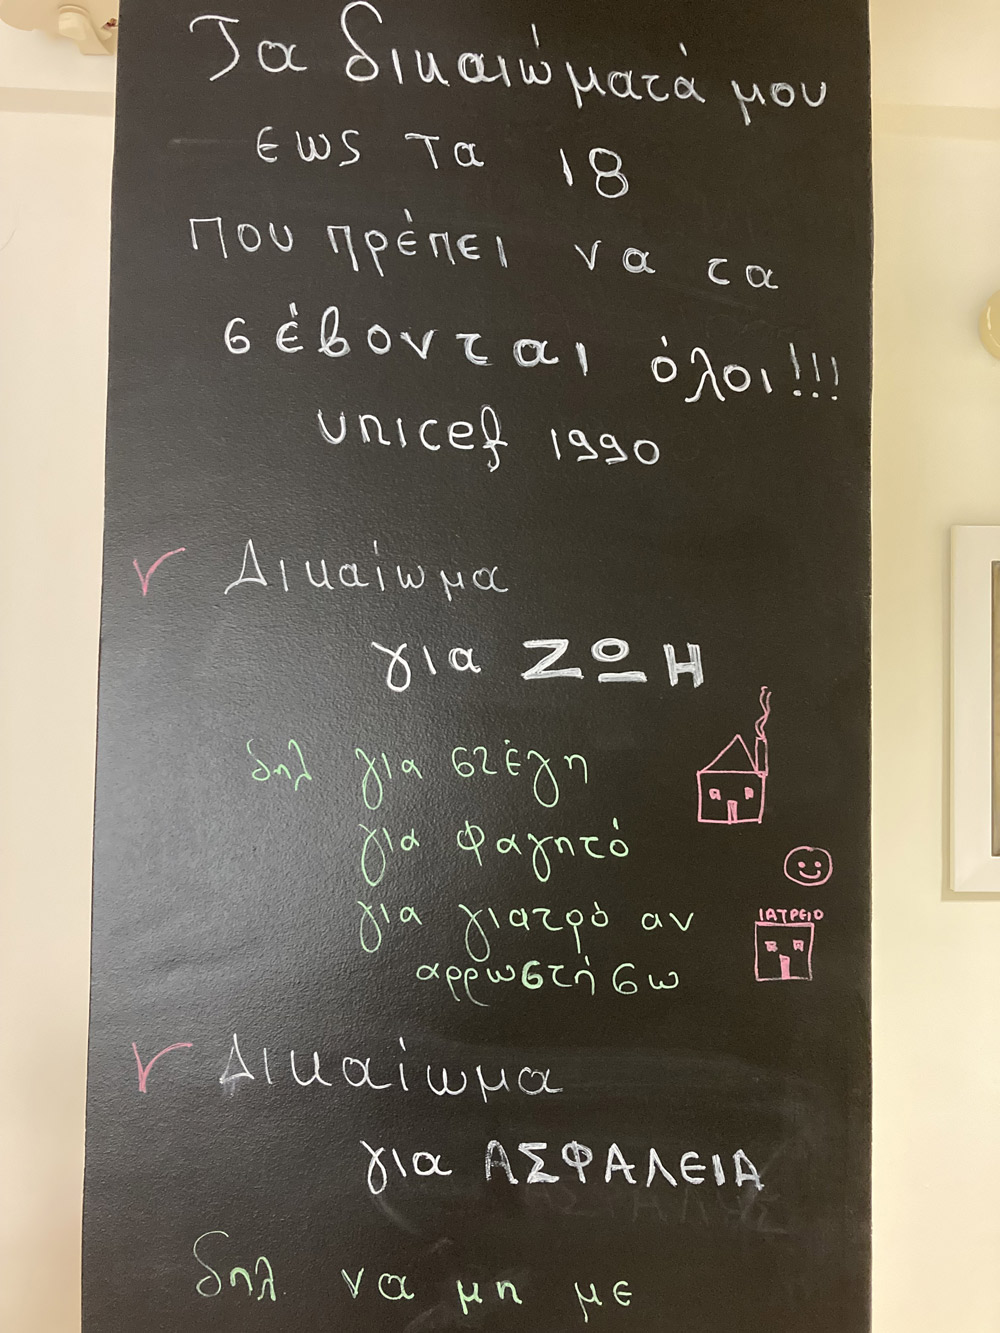 Τα δικαιώματά μου
εως τα 18
Που πρέπει να τα
σέβονται όλοι!!!
unicef 1990
Δικαίωμα
για ΖΩΗ
δηλ για στέγη
για φαγητό
για γιατρό αν
αρρωστήσω
ΙΑΤΡΕΙΟ
Δικαίωμα
για ΑΣΦΑΛΕΙΑ
δηλ να μη με